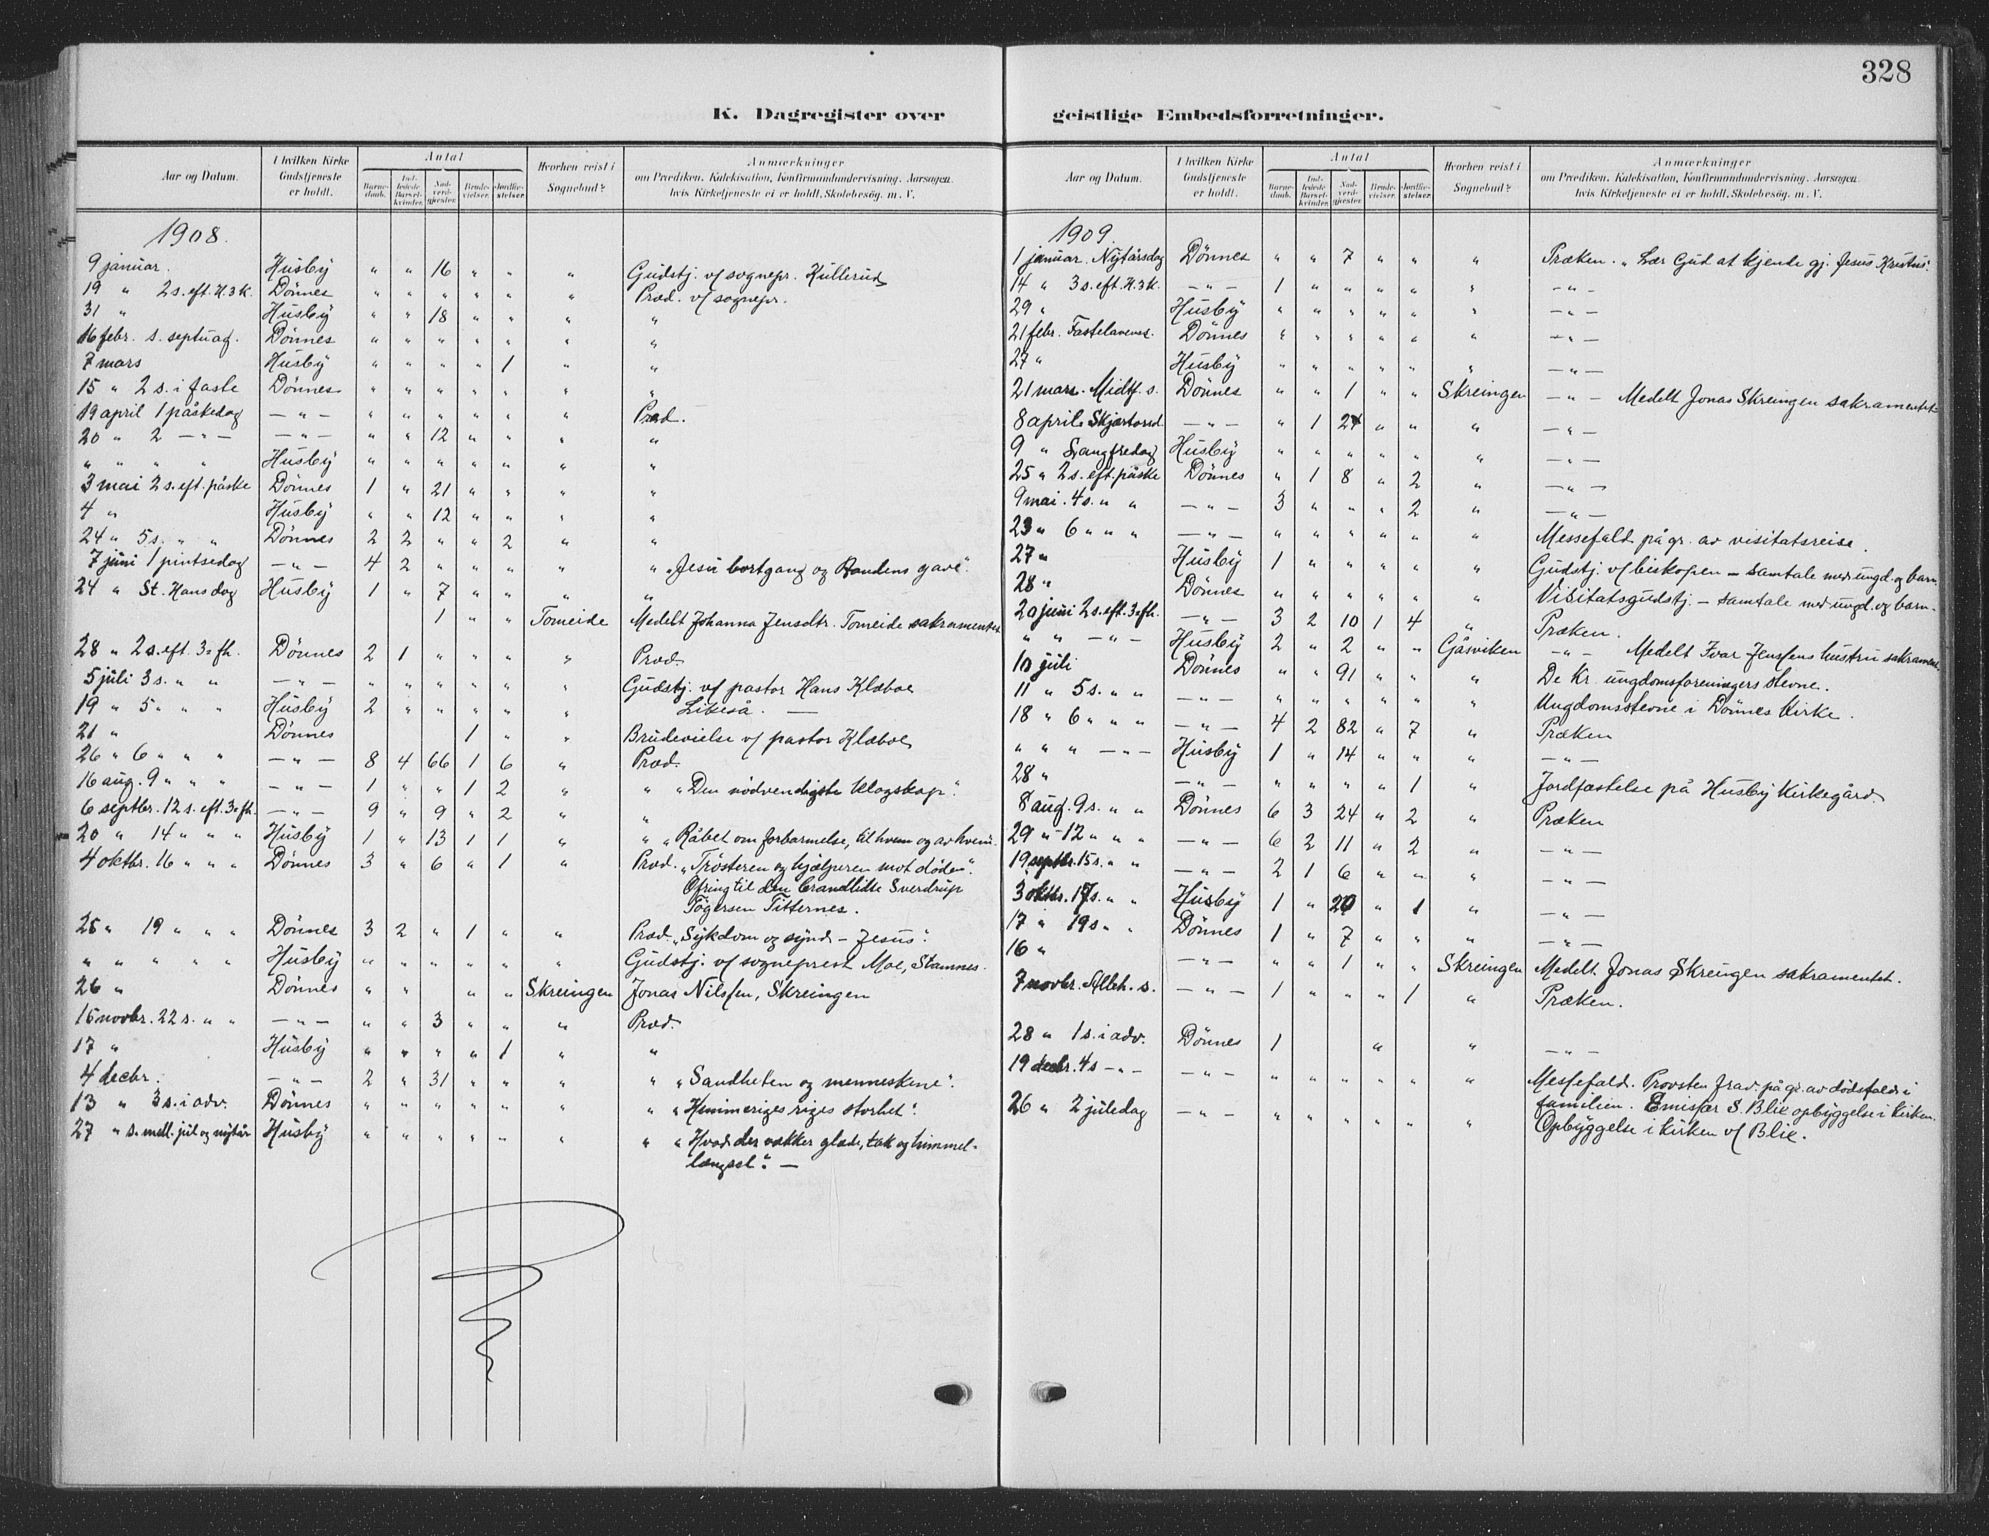 328
K. Dagregister over geistlige Embedsforretninger.
Aar og Datum. I hvilken Kirke Gudstjeneste er holdt. Antal Barnedaab. Indledede Barselkvinder. Nadverdgjester. Brudevielser. Jordfæstelser. Hvorhen reist i Sognebud? Anmærkninger om Prædiken, Katekisation, Konfirmandundervisning, Aarsagen, hvis Kirketjeneste ei er holdt, Skolebesøg. m. V.
1908.
9 januar. Husby " " 16 " " " Gudstj. v/ sognepr. Kullerud
19 " 2 s. eft. H.3K. Dönnes " " " " " " Præd. v/ sognepr.
31 " Husby " " 18 " " " "
16 febr. s. septuag. Dönnes " " " " " " "
7 mars Husby " " " " 1 " "
15 " 2 s. i faste Dönnes " " " " " " "
19 april 1 påskedag — " — " " " " " " Præd.
20 " 2 — " — — " — " " 12 " " " "
" " " " Husby " " " " " " "
3 mai 2 s. eft. påske Dönnes 1 " 21 " " " "
4 " Husby " " 12 " " " "
24 " 5 s. " " Dönnes 2 2 " " 2 " "
7 juni 1 pintsedag — " — 4 2 " " " " " "Jesu bortgang og Åandens gave".
24 " St. Hansdag Husby 1 " 7 " " " "
1 " " Tomeide Medelt Johanna Jensdtr. Tomeide sakramentet
28 " 2 s. eft. 3=fh. Dönnes 2 1 " " " " Præd.
5 juli 3 s. " " — " — " " " " " " Gudstj. v/ pastor Hans Klæboe
19 " 5 " " " Husby 2 " " " " " Likeså. —
21 " Dönnes 1 " " Brudevielse v/ pastor Klæboe
26 " 6 " " " — " — 8 4 66 1 6 " Præd.
16 aug. 9 " " " — " — 1 " " 1 2 " " "Den nödvendigste klogskap".
6 septbr. 12 s. eft. 3=fh. — " — 9 " 9 " 2 " "
20 " 14 " " " Husby 1 " 13 1 1 " " "Råbet om forbarmelse, til hvem og av hvem.
4 oktbr. 16 " " " Dönnes 3 " 6 " 1 " Præd. "Trösteren og hjælperen mot döden".
Ofring til den brandlidte Sverdrup
Tögersen Titternes.
25 " 19 " " " Dönnes 3 2 " 1 " " Præd. "Sykdom og synd – Jesus".
" " " " " Husby " " " " " " Gudstj. v/ sogneprest Moe, Stamnes.
26 " Dönnes " " " " Skreingen Jonas Nilssen, Skreingen
15 novbr. 22 s. " " — " — " " 3 " " " Præd.
17 " Husby " " " " 1 " "
4 decbr. — " — 2 " 31 " " " " "Sandheten og menneskene".
13 " 3 s. i adv. Dönnes " " " " " " " "Himmeriges riges storhet".
27 " s. mell. jul og nytår Husby " " " " " " " "Hvad der vækker glæde, tak og himmel-
længsel". —
Aar og Datum. I hvilken Kirke Gudstjeneste er holdt. Antal Barnedaab. Indledede Barselkvinder. Nadverdgjester. Brudevielser. Jordfæstelser. Hvorhen reist i Sognebud? Anmærkninger om Prædiken, Katekisation, Konfirmandundervisning, Aarsagen, hvis Kirketjeneste ei er holdt, Skolebesøg. m. V.
1909.
1 januar. Nytårsdag Dönnes " " 7 " " " Præken. "Lær Gud at kjende gj. Jesus Kristus".
14 " 3 s. eft. H.3K. — " — 1 " " " " " — " —
29 " Husby " " " " " " — " —
21 febr. Fastelavens. Dönnes " " " " " " — " —
27 " Husby " " " " " " — " —
21 mars. Midtf. s. Dönnes " " 1 " " Skreingen — " — Medelt Jonas Skreingen sakramentet
8 april. Skjærtorsd. — " — " 1 24 " " " — " —
9 " Langfredag Husby " " " " " " — " —
25 " 2 s. eft. påske Dönnes " 1 8 " 2 " — " —
9 mai. 4 s. " " — " — 3 " " " 2 " — " —
23 " 6 " " " — " — " " " " " " Messefald på gr. av visitatsreise.
27 " Husby 1 " " " " " Gudstj. v/ biskopen – samtale med ungd. og barn.
28 " Dönnes " " " " " " Visitatsgudstj. – samtale med ungd. og barn.
20 juni 2 s. eft. 3=fh. — " — 3 2 10 1 4 " Præken.
" " — " — Husby 2 " 2 " " Gåsviken — " — Medelt Ivar Jenssens hustru sakrament.
10 juli Dönnes " " 91 " " " De Kr. ungdomsforeningers stevne.
11 " 5 s. " " — " — " " " " " " Ungdomsstevne i Dönnes Kirke.
18 " 6 " " " — " — 4 2 82 " 7 " Præken
" " " — " — Husby 1 " 14 " " " — " —
28 " — " — " " " " 1 " Jordfæstelse på Husby Kirkegård.
8 aug. 9 s. " " Dönnes 6 3 24 " 2 " Præken
29 " 12 " " " — " — 6 2 11 " 2 " — " —
19 septbr. 15 s. " " — " — 2 1 6 " " " — " —
3 oktbr. 17 s. " " Husby 1 " 20 " 1 " — " —
17 " 19 s " " Dönnes 1 " 7 " " " — " —
16 " — " — " " 1 " " Skreingen Medelt Jonas Skreingen sakramentet.
7 novbr. Alleh. s. — " — 1 " " " 1 " Præken.
28 " 1 s. i adv. Dönnes 1 " " — " —
19 decbr. 4 s — " — — " — " " " " " " Messefald. Provsten frav. på gr. av dödsfald i
familien. Emissær S. Blix opbyggelse i kirken.
26 " 2 juledag — " — " " " " " " Opbyggelse i kirken v/ Blix.